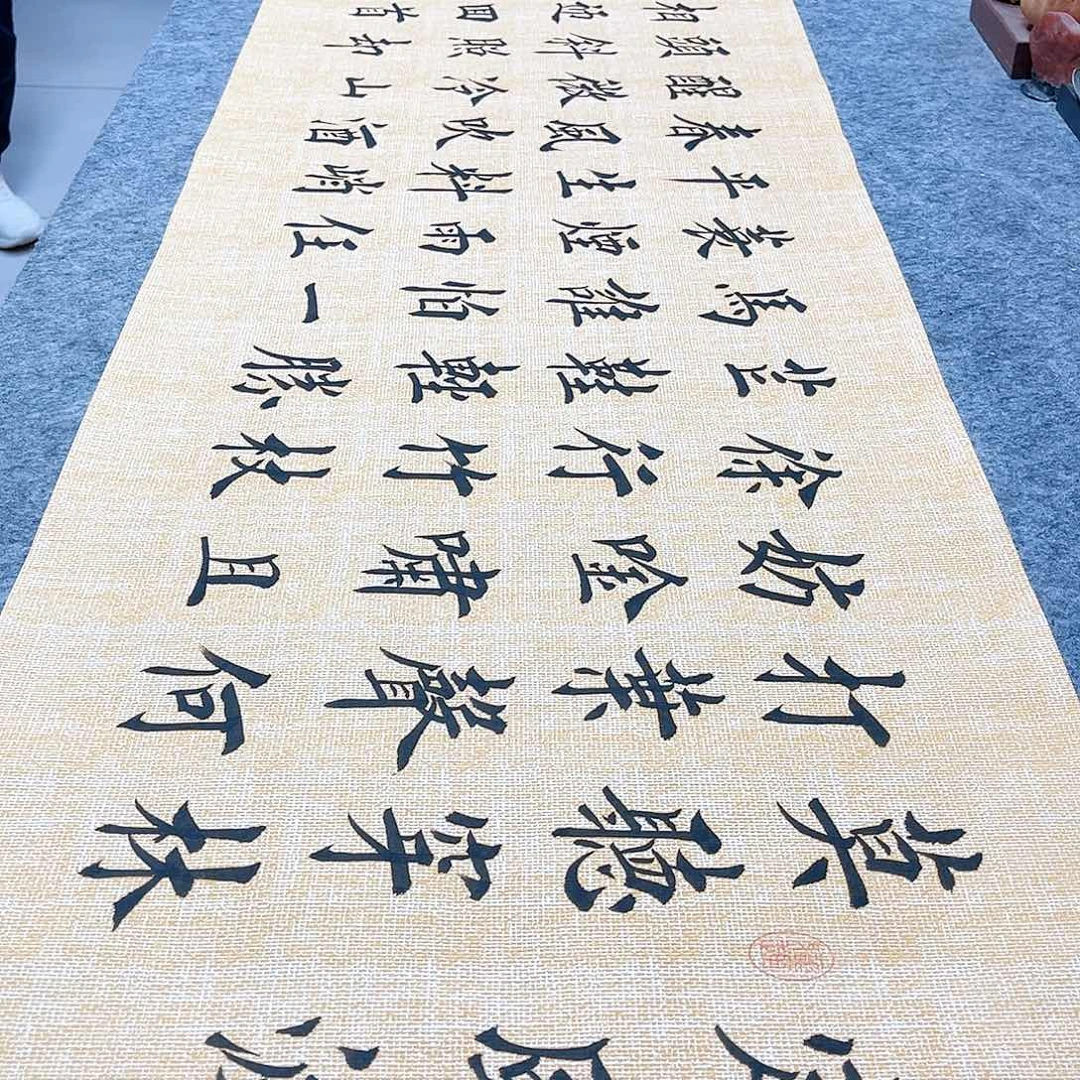 定風波
莫聽穿林
打葉聲何
妨吟嘯且
徐行竹杖
芒鞋輕勝
馬誰怕一
蓑煙雨任
平生料峭
春風吹酒
醒微冷山
頭斜照却
相迎回首